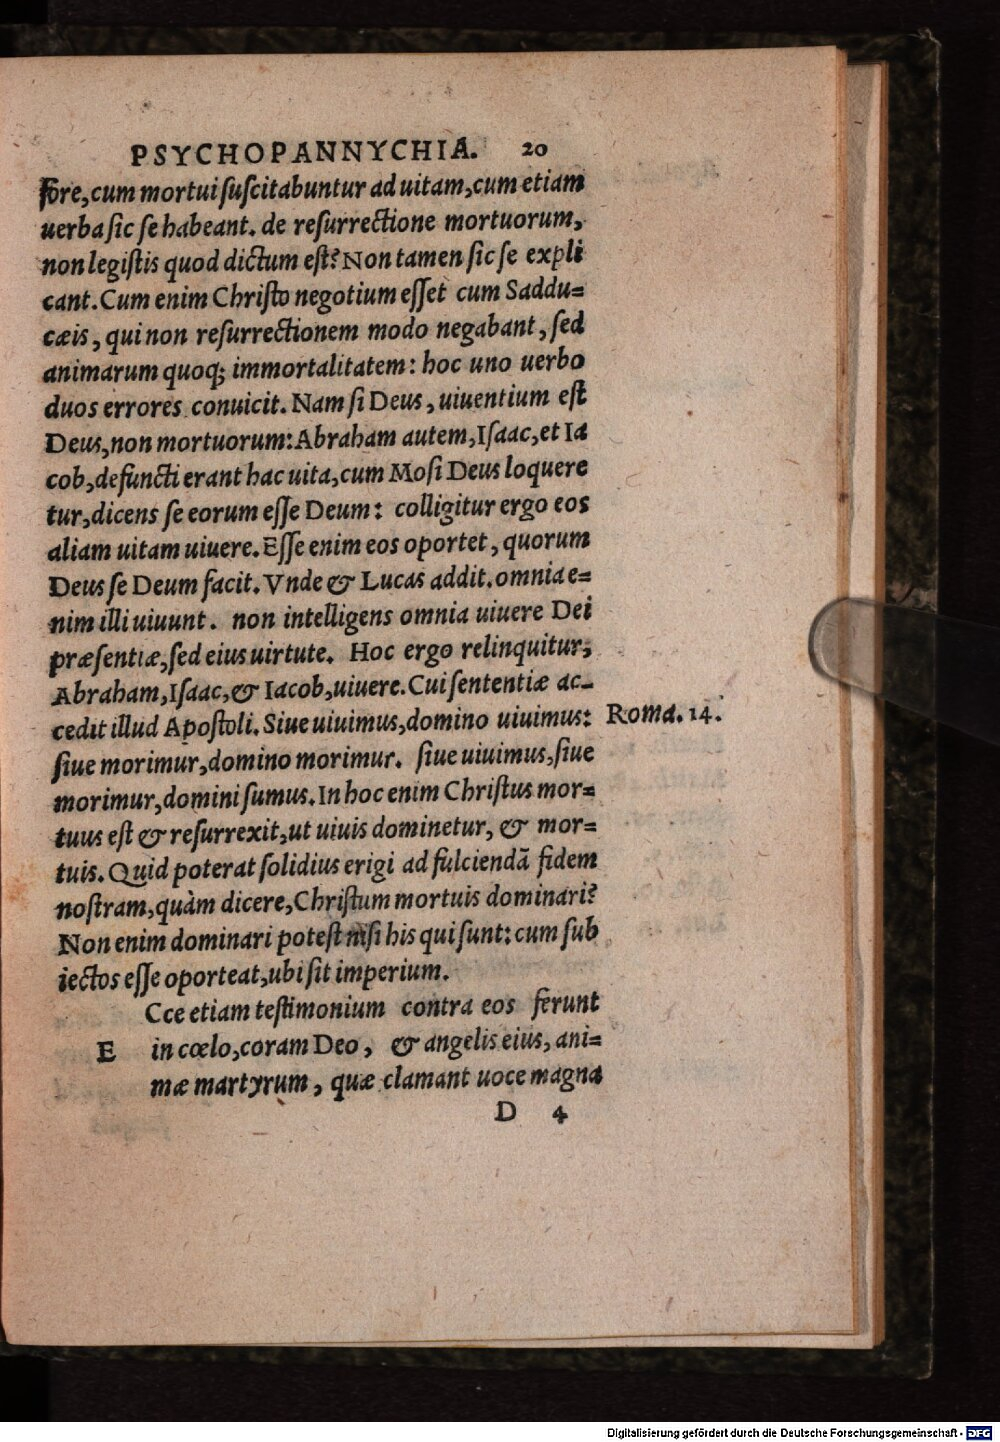 PSYCHOPANNYCHIA. 20
fore, cum mortui ſuſcitabuntur ad uitam, cum etiam
uerba ſic ſe habeant. de reſurrectione mortuorum,
non legiſtis quod dictum eſt? Non tamen ſic ſe expli
cant. Cum enim Chriſto negotium eſſet cum Saddu=
cæis, qui non reſurrectionem modo negabant, ſed
animarum quoq; immortalitatem: hoc uno uerbo
duos errores conuicit. Nam ſi Deus, uiuentium eſt
Deus, non mortuorum: Abraham autem, Iſaac, et Ia
cob, defuncti erant hac uita, cum Moſi Deus loquere
tur, dicens ſe eorum eſſe Deum: colligitur ergo eos
aliam uitam uiuere. Eſſe enim eos oportet, quorum
Deus ſe Deum facit. Vnde & Lucas addit. omnia e=
nim illi uiuunt. non intelligens omnia uiuere Dei
præſentiæ, ſed eius uirtute. Hoc ergo relinquitur,
Abraham, Iſaac, & Iacob, uiuere. Cui ſententiæ ac=
cedit illud Apoſtoli. Siue uiuimus, domino uiuimus: Roma. 14.
ſiue morimur, domino morimur. ſiue uiuimus, ſiue
morimur, domini ſumus. In hoc enim Chriſtus mor=
tuus eſt & reſurrexit, ut uiuis dominetur, & mor=
tuis. Quid poterat ſolidius erigi ad fulciendã fidem
noſtram, quàm dicere, Chriſtum mortuis dominari?
Non enim dominari poteſt niſi his qui ſunt: cum ſub
iectos eſſe oporteat, ubi ſit imperium.
Cce etiam teſtimonium contra eos ferunt
E in cœlo, coram Deo, & angelis eius, ani=
mæ martyrum, quæ clamant uoce magna
D 4
Digitalisierung gefördert durch die Deutsche Forschungsgemeinschaft - DFG